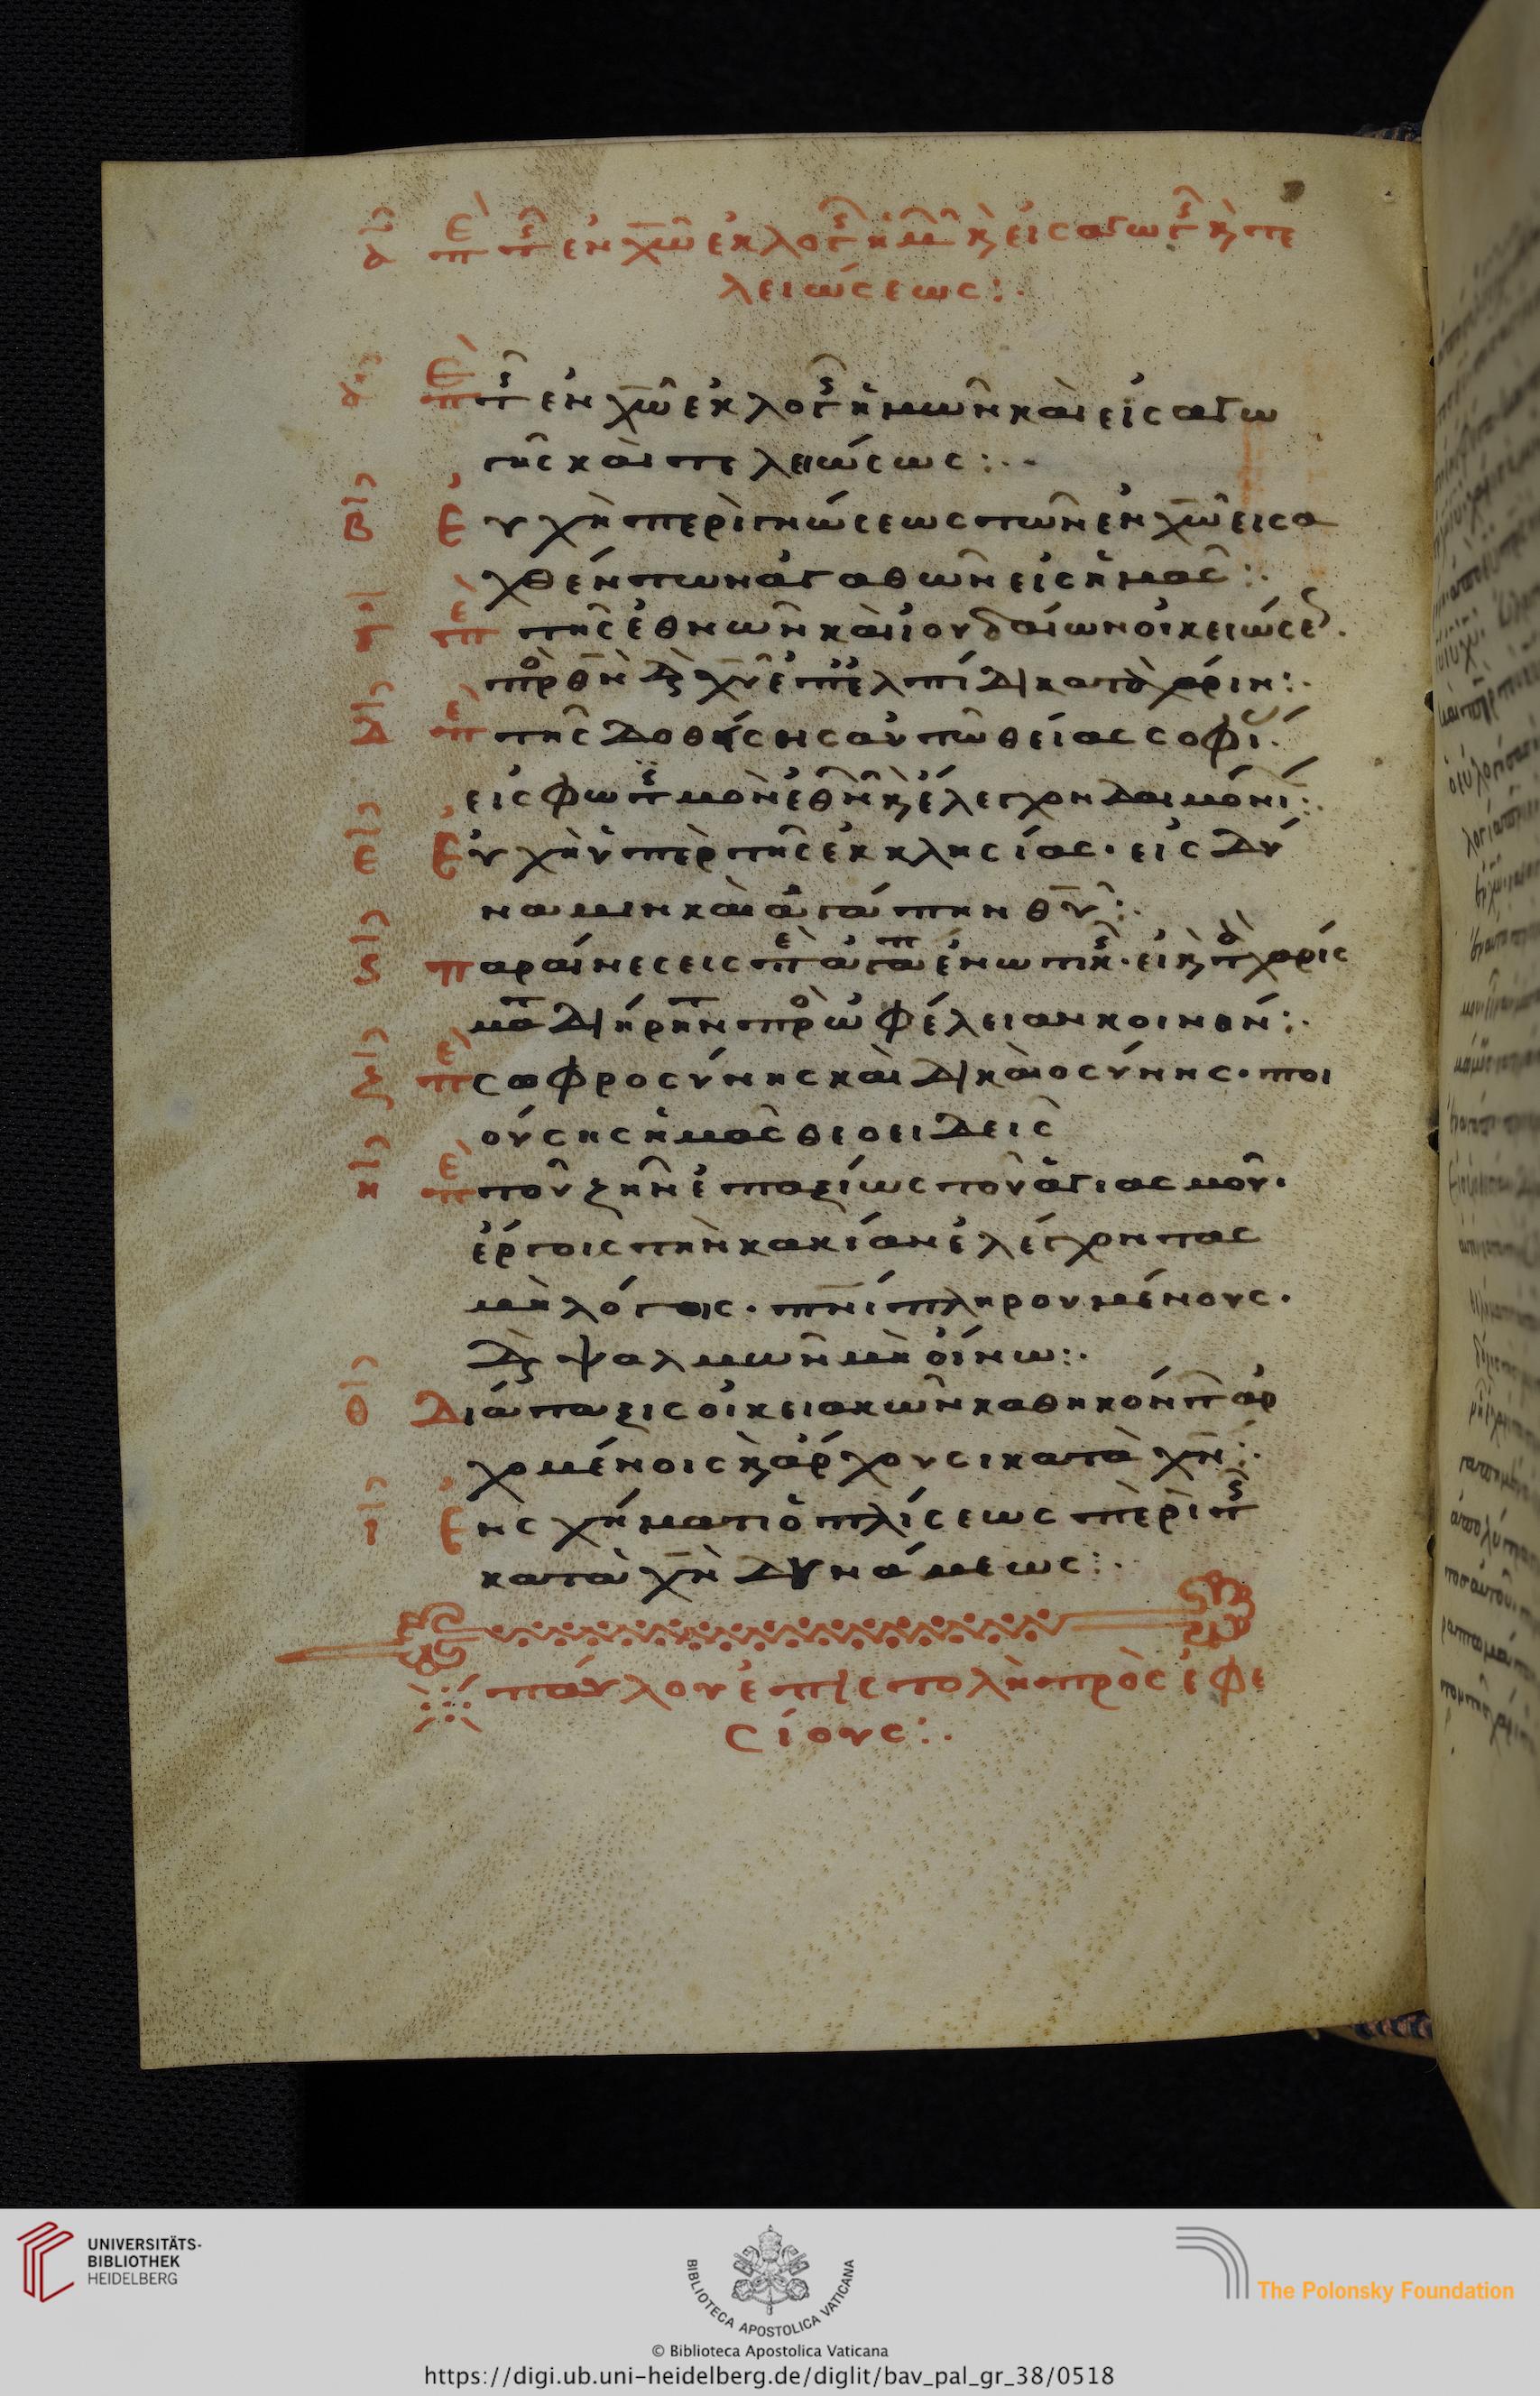 ἐν χω ἐκλογ ἡμ κ εἰσαγωγ κ τε
λειώσεως:·
α Περὶ τ ἐν χω ἐκλογ ἡμῶν καὶ εἰσαγω
γῆς καὶ τελειώσεως:·
β Εὐχὴ περὶ γνώσεως τῶν ἐν χω εἰσα
χθέντων ἀγαθῶν εἰς ἡμᾶς:·
γ Πε τῆς ἐθνῶν καὶ ἰουδαίων οἰκειώσε
πρ θν δ χυ ἐπ ἐλπίδι κατὰ χάριν:·
δ Πε τῆς δοθείσης αὐτῶ θείας σοφί
εἰς φωτισμὸν ἐθν κ ἔλεγχον δαιμόνι:·
ε Εὐχὴ ὑπὲρ τῆς ἐκκλησίας· εἰς δύ
ναμιν καὶ ἀγάπην θυ:·
ς Παραίνεσεις πε ἀγάπ ἑνωτικ· εἰ κ τὰ χαρίσ
ματ διηρην πρὸ ὠφέλειαν κοινήν:·
ζ Πε σωφροσύνης καὶ δικαιοσύνης· ποι
ούσης ἡμᾶς θεοειδεῖς
η Πε τοῦ ζῆν ἐπαξίως τοῦ ἁγιασμοῦ·
ἔργοις τὴν κακίαν ἐλέγχοντας
μὴ λόγοις· πνι πληρουμένους·
δ ψαλμῶν μὴ οἴνω:·
θ Διάταξις οἰκειακῶν καθηκόντ ἀρ
χομένοις κ ἄρχουσι κατὰ χν:·
ι Ἐν σχήματι ὁπλίσεως περὶ τ
κατὰ χν δυνάμεως:·
παύλου ἐπιστολὴ πρὸς ἐφε
σίους:·
UNIVERSITÄTS-
BIBLIOTHEK
HEIDELBERG
BIBLIOTECA APOSTOLICA VATICANA
The Polonsky Foundation
© Biblioteca Apostolica Vaticana
https://digi.ub.uni-heidelberg.de/diglit/bav_pal_gr_38/0518